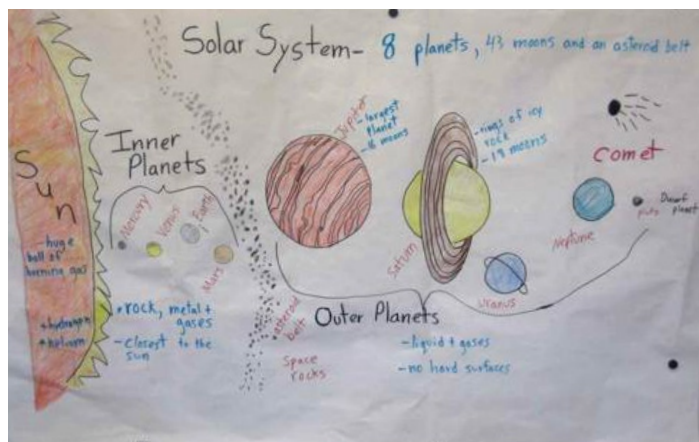 Solar System- 8 planets, 43 moons and an asteroid belt
Sun
-huge
ball of
burning gas
*hydrogen
*helium
Inner
Planets
Mercury
Venus
Earth
Mars
*rock, metal +
gases
-closest to the
sun
asteroid
belt
Space
rocks
Jupiter
-largest
planet
-16 moons
Saturn
-rings of icy
rock
-18 moons
Uranus
Neptune
Comet
pluto
Dwarf
planet
Outer Planets
-liquid + gases
-no hard surfaces